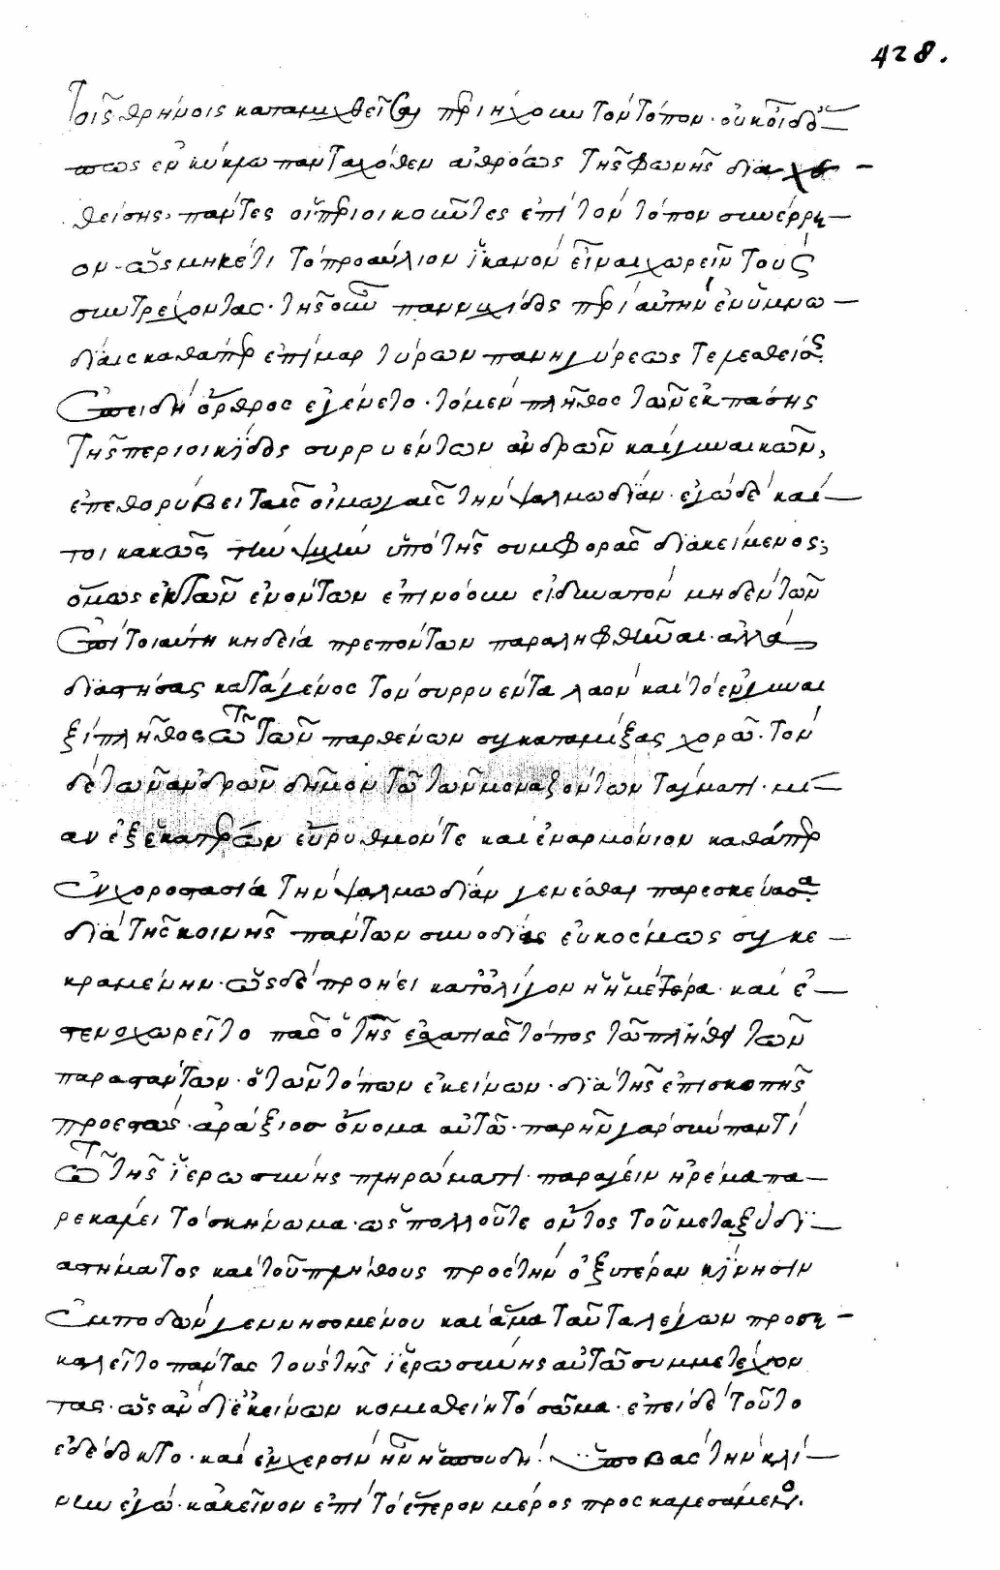 428.
Τοῖς θρήνοις καταμιχθεῖσαι περιήχουν τὸν τόπον. οὐκ οἶδ᾽
πως ἐν κύκλω πανταχόθεν ἀθρόως τῆς φωνῆς δια χε
θείσης. πάντες οἱ περιοικοῦντες ἐπὶ τὸν τόπον συνέρρε
ον. ὡς μηκέτι τὸ προαύλιον ἱκανὸν εἶναι χωρεῖν τοὺς
συντρέχοντας. τῆς οὖν παννυχίδος περὶ αὐτὴν ἐν ὑμνω
δίαις καθάπερ ἐπὶ μαρτύρων πανηγύρεως τελεσθείσης.
Ἐπειδὴ ὄρθρος ἐγένετο. τὸ μὲν πλῆθος τῶν ἐκ πάσης
Τῆς περιοικίδος συρρυέντων ἀνδρῶν καὶ γυναικῶν,
ἐπεθορύβει ταῖς οἰμωγαῖς τὴν ψαλμωδίαν. ἐγὼ δὲ καί
τοι κακῶς τὴν ψυχὴν ὑπὸ τῆς συμφορᾶς διακείμενος,
ὅμως ἐκ τῶν ἐνόντων ἐπινόουν εἰ δυνατὸν μηδὲν τῶν
Ἐπὶ τοιαύτη κηδεία πρεπόντων παραλειφθῆναι. ἀλλὰ
διαστήσας κατὰ γένος τὸν συρρυέντα λαὸν καὶ τὸ ἐν γυναι
ξὶ πλῆθος τῶ τῶν παρθένων συγκαταμίξας χορῶ. τὸν
δὲ τῶν ἀνδρῶν δῆμον τῶ τῶν μοναζόντων τάγματι. μί
αν ἐξ ἑκατέρων εὔρυθμόν τε καὶ ἐναρμόνιον καθάπερ
Ἐν χοροστασία τὴν ψαλμωδίαν γενέσθαι παρεσκεύασα.
διὰ τῆς κοινῆς πάντων συνοδίας εὐκόσμως συγκε
κραμένην. ὡς δὲ προήει κατ᾽ ὀλίγον ἡ ἡμέρα. καὶ ἐ
στενοχωρεῖτο πᾶς ὁ τῆς ἐσχατιᾶς τόπος τῶ πλήθει τῶν
παραστάντων. ὁ τῶν τόπων ἐκείνων. διὰ τῆς ἐπισκοπῆς
προεστώς. ἀράξιος ὄνομα αὐτῶ. παρῆν γὰρ σὺν παντὶ
τῶ τῆς ἱερωσύνης πληρώματι. παράγειν ἠρέμα πα
ρεκάλει τὸ σκήνωμα. ὡς πολλοῦ τε ὄντος τοῦ μεταξὺ δι
αστήματος καὶ τοῦ πλήθους πρὸς τὴν ὀξυτέραν κίνησιν
Ἐμποδὼν γεννησομένου καὶ ἅμα ταῦτα λέγων προσε
καλεῖτο πάντας τοὺς τῆς ἱερωσύνης αὐτῶ συμμετέχον
τας. ὡς ἂν δι᾽ ἐκείνων κομισθείη τὸ σῶμα. ἐπεὶ δὲ τοῦτο
ἐδέδοκτο. καὶ ἐν χερσὶν ἦν ἡ σπουδή. ὑποβὰς τὴν κλί
νην ἐγώ. κἀκεῖνον ἐπὶ τὸ ἕτερον μέρος προσκαλεσάμενος.